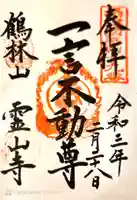 奉拝
令和三年二月二十八日
一言不動尊
鶴林山
霊山寺